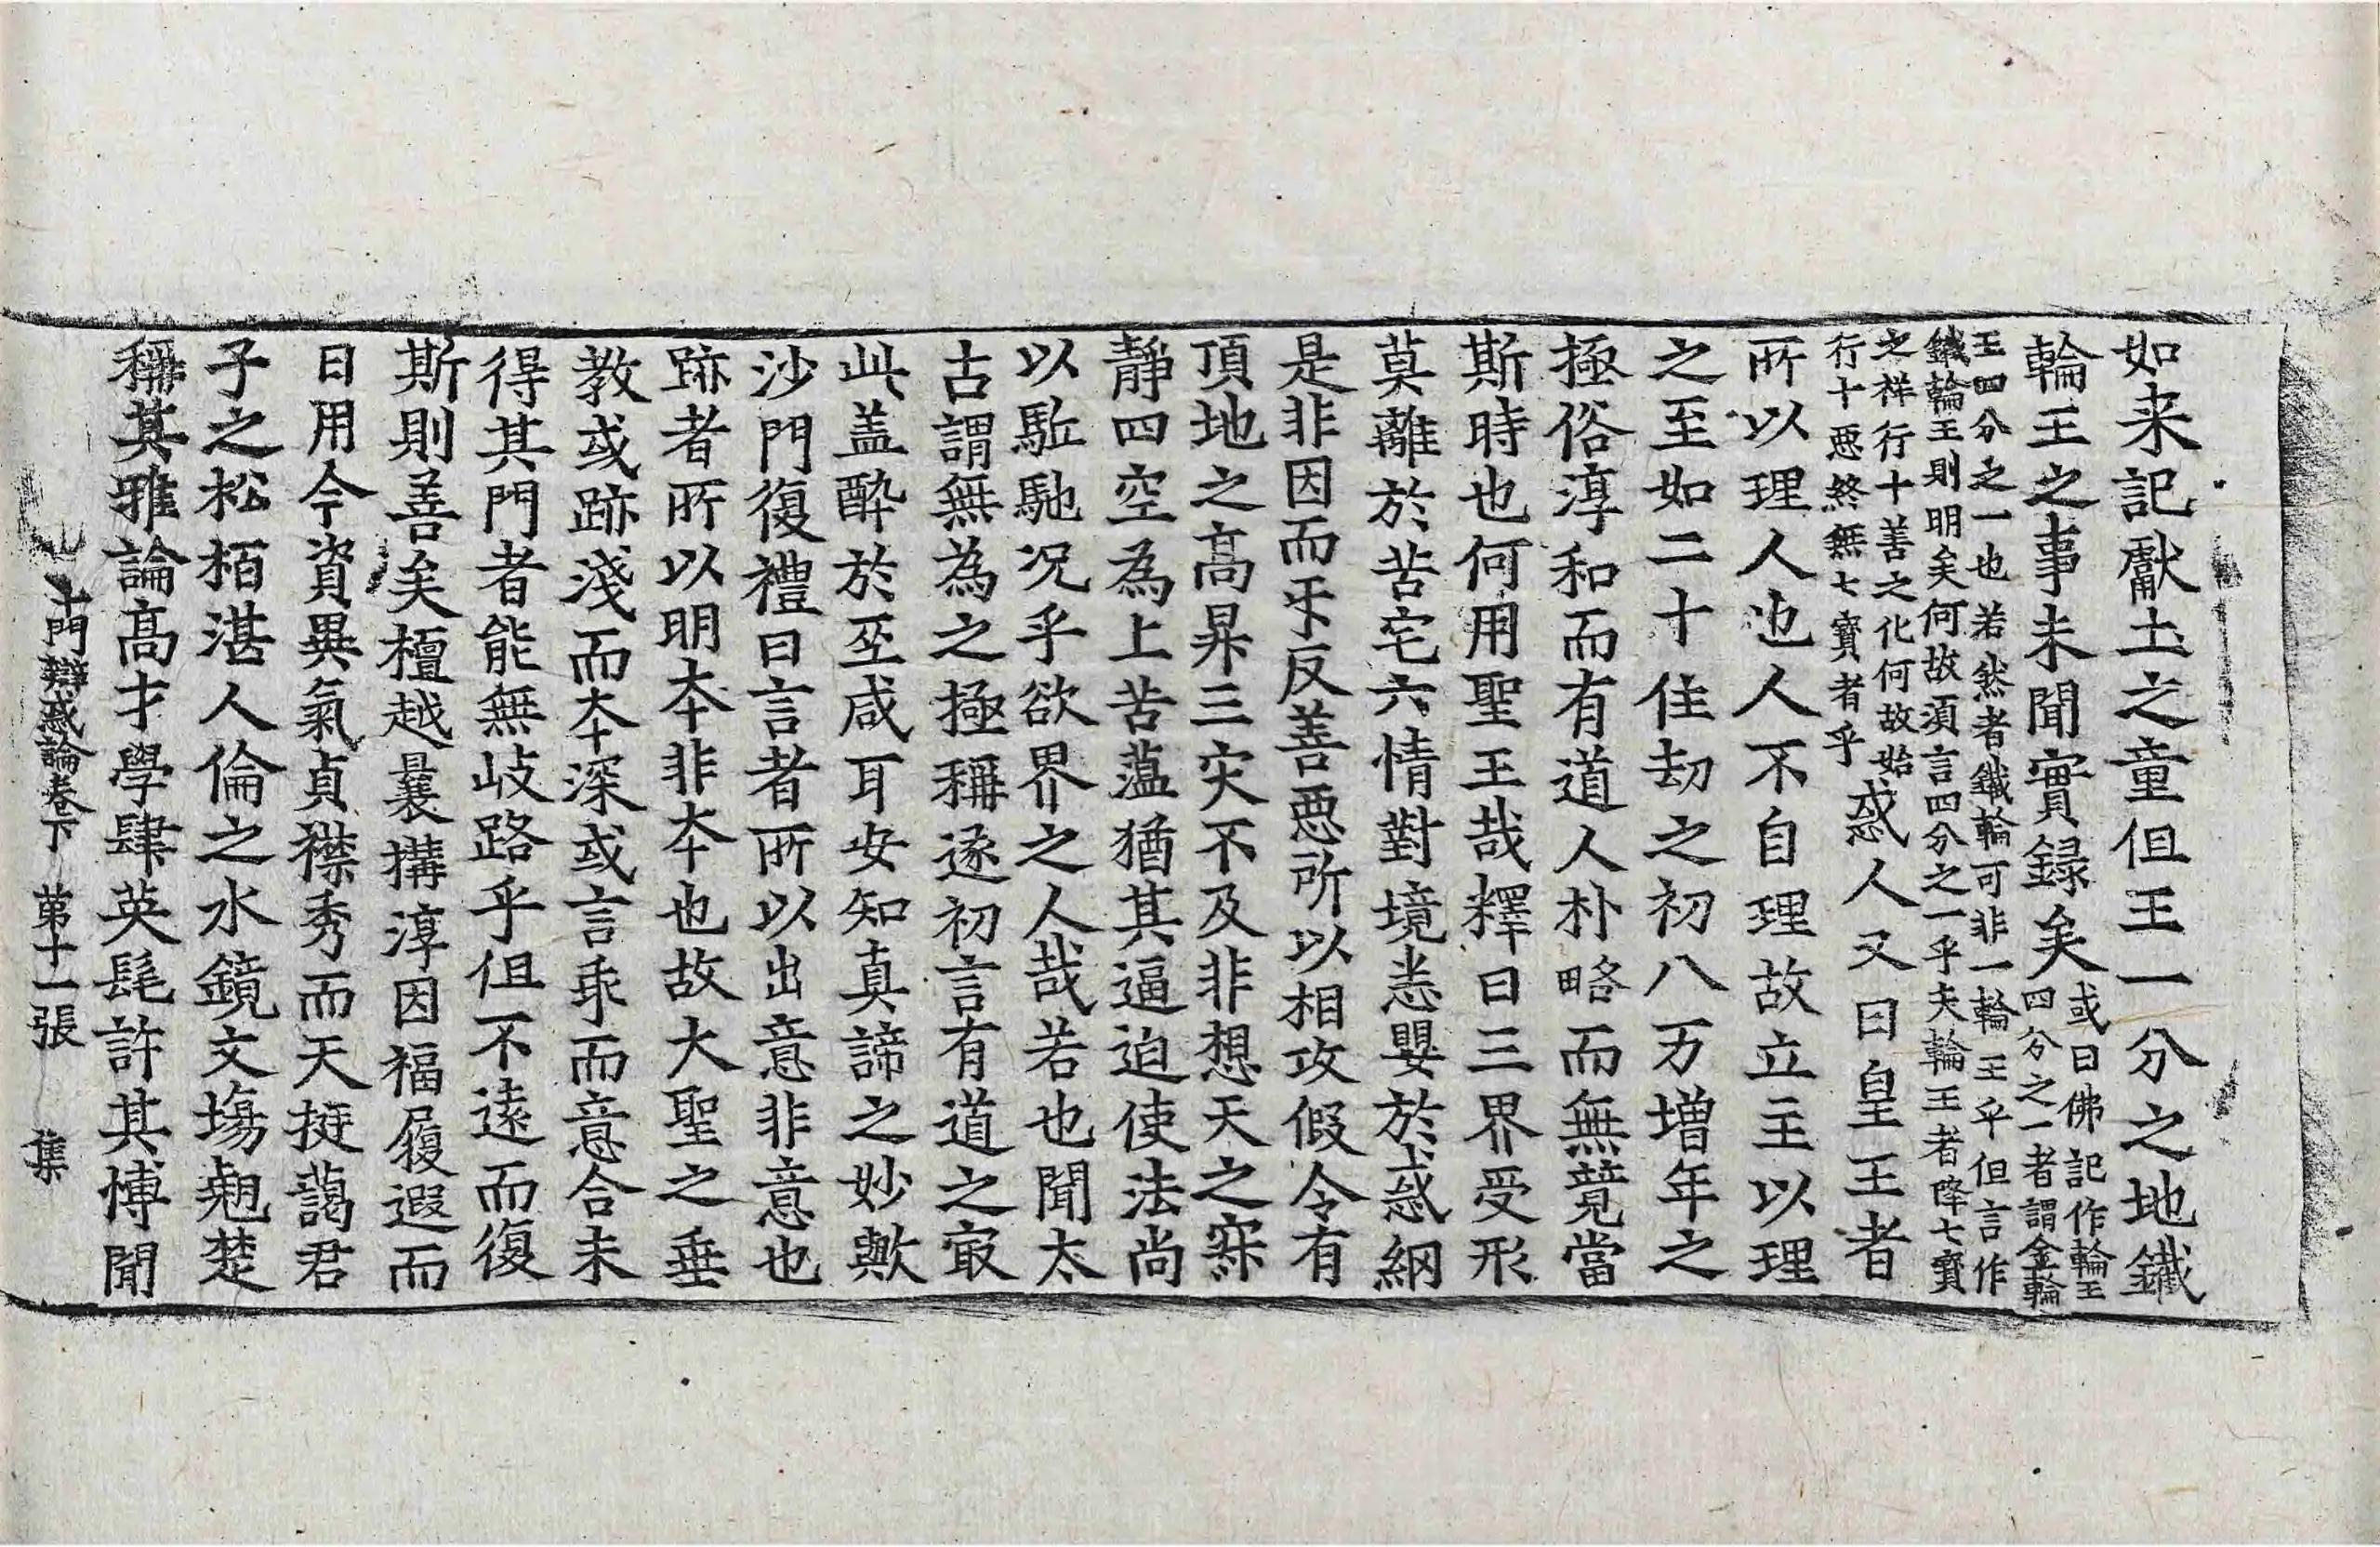 如来記獻土之童但王一分之地鐵
輪王之事未聞實録矣或曰佛記作輪王
四分之一者謂金輪
王四分之一也若然者鐵輪可非一輪王乎但言作
鐵輪王則明矣何故須言四分之一乎夫輪王者降七寳
之祥行十善之化何故始
行十惡終無七寳者乎惑人又曰皇王者
所以理人也人不自理故立主以理
之至如二十住劫之初八万增年之
極俗淳和而有道人朴略而無競當
斯時也何用聖王哉釋曰三界受形
莫離於苦宅六情對境恙嬰於惑網
是非因而乎反善惡所以相攻假令有
頂地之高昇三灾不及非想天之寐
靜四空為上苦薀猶其逼迫使法尚
以駈馳况乎欲界之人哉若也聞太
古謂無為之極稱逐初言有道之㝡
此盖酔於巫咸耳安知真諦之妙歟
沙門復禮曰言者所以出意非意也
跡者所以明夲非夲也故大聖之垂
教或跡淺而夲深或言乖而意合未
得其門者能無歧路乎但不遠而復
斯則善矣檀越曩搆淳因福履遐而
日用今資異氣貞襟秀而天挺藹君
子之松栢湛人倫之水鏡文塲翹楚
稱其雅論高才學肆英髦許其博聞
十門辯惑論卷下　第十一張　集